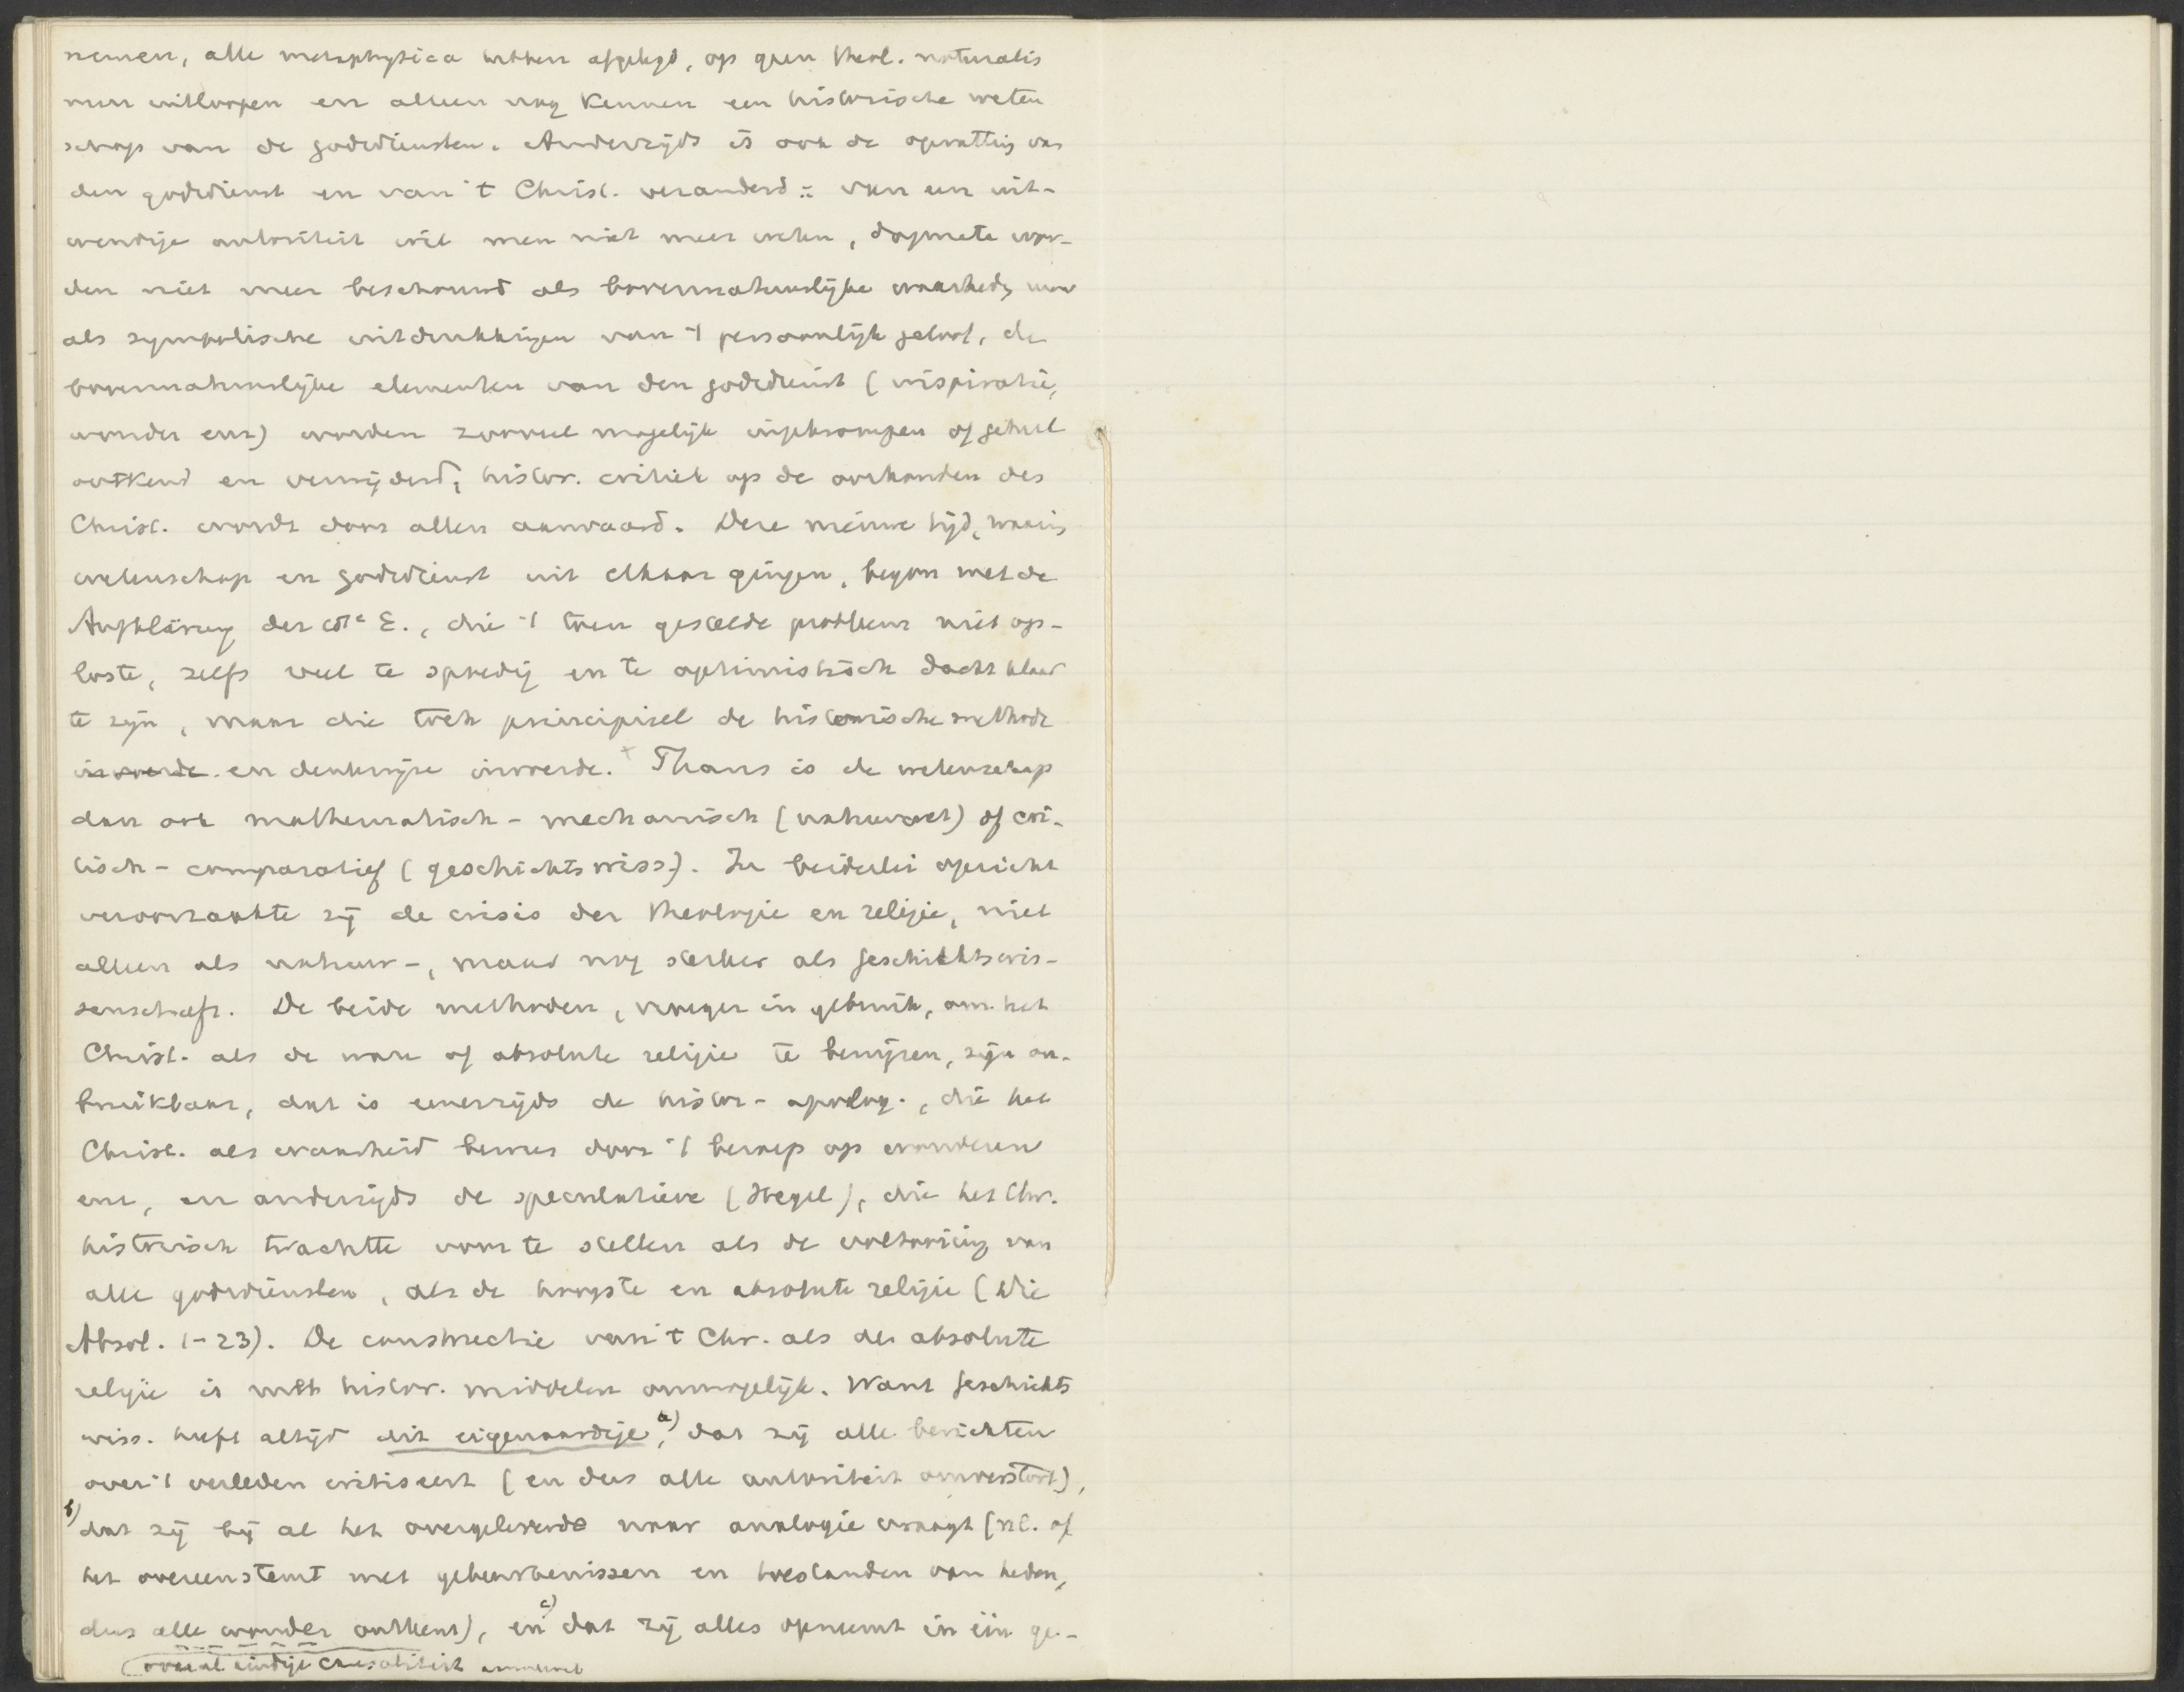 nemen, alle metaphysica hebben afgelegd, op geen theol. naturalis
meer uitloopen en alleen nog kennen een historische weten
schap van de godsdiensten. Anderzijds is ook de opvatting van
den godsdienst en van 't Christ. veranderd: van een uit-
wendige autoriteit wil men niet meer weten, dogmata wor-
den niet meer beschouwd als bovennatuurlijke waarheden maar
als symbolische uitdrukkingen van 't persoonlijk geloof, de
bovennatuurlijke elementen van den godsdienst (inspiratie,
wonder enz) worden zooveel mogelijk ingekrompen of geheel
ontkend en verwijderd, histor. critiek op de oorkonden des
Christ. wordt door allen aanvaard. Deze nieuwe tijd, waarin
wetenschap en godsdienst uit elkaar gingen, begon met de
Aufklärung der E., die 't toen gestelde probleem niet op-
loste, zelfs veel te spoedig en te optimistisch dacht klaar
te zijn, maar die toch principieel de historische methode
invoerde en denkwijze invoerde. Thans is de wetenschap
dan ook mathematisch-mechanisch (natuurwet) of cri-
tisch-comparatief (geschichtswiss.). In beiderlei opzicht
veroorzaakte zij de crisis der theologie en religie, niet
alleen als natuur-, maar nog sterker als Geschichtswis-
senschaft. De beide methoden, vroeger in gebruik, om het
Christ. als de ware of absolute religie te bewijzen, zijn on-
bruikbaar, dat is eenerzijds de histor-apolog., die het
Christ. als waarheid bewees door 't beroep op wonderen
enz, en anderzijds de speculatieve (Hegel), die het Chr.
historisch trachtte voor te stellen als de voltooiing van
alle godsdiensten, als de hoogste en absolute religie (Die
Absol. 1-23). De constructie van 't Chr. als de absolute
religie is met histor. middelen onmogelijk. Want Geschichts
wiss. heeft altijd dit eigenaardige, a) dat zij alle berichten
over 't verleden critiseert (en dus alle autoriteit omverstort),
b) dat zij bij al het overgeleverde naar analogie vraagt (nl. of
het overeenstemt met gebeurtenissen en toestanden van heden,
dus alle wonder ontkent), en c) dat zij alles opneemt in één ge-
overal eindige causaliteit aanneemt